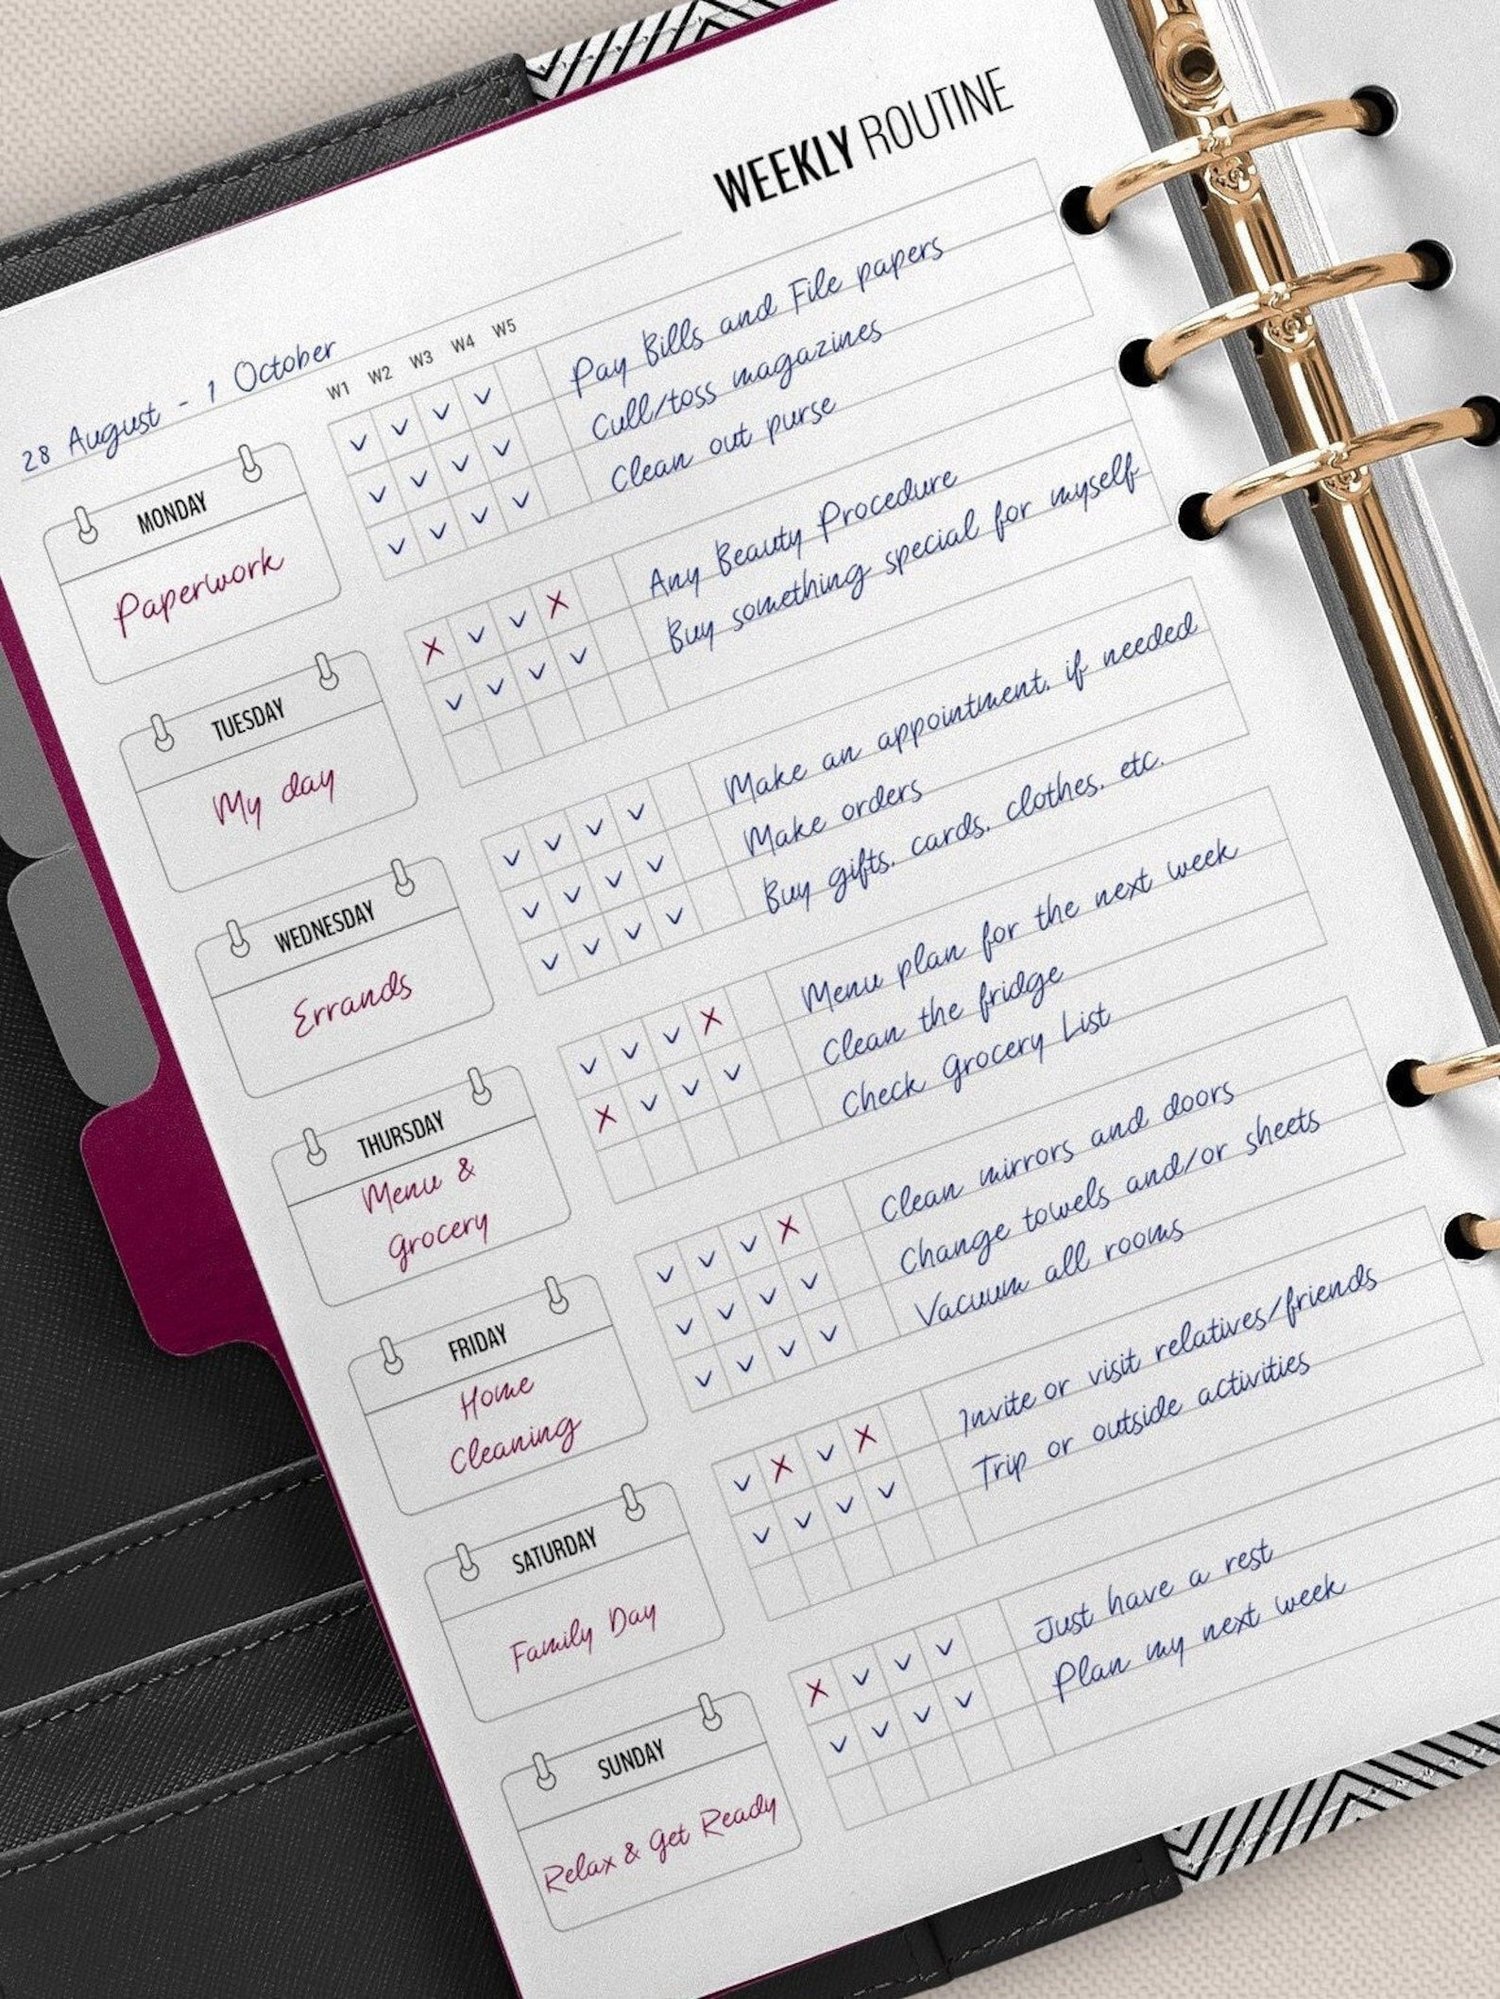 WEEKLY ROUTINE
28 August - 1 October
W1 W2 W3 W4 W5
MONDAY
Paperwork
✓ ✓ ✓ ✓ Pay Bills and File papers
✓ ✓ ✓ ✓ Cull/toss magazines
✓ ✓ ✓ ✓ Clean out purse
TUESDAY
My day
X ✓ ✓ X Any Beauty Procedure
✓ ✓ ✓ ✓ Buy something special for myself
WEDNESDAY
Errands
✓ ✓ ✓ ✓ Make an appointment, if needed
✓ ✓ ✓ ✓ Make orders
✓ ✓ ✓ ✓ Buy gifts, cards, clothes, etc.
THURSDAY
Menu &
Grocery
✓ ✓ ✓ X Menu plan for the next week
X ✓ ✓ ✓ Clean the fridge
Check Grocery List
FRIDAY
Home
Cleaning
✓ ✓ ✓ X Clean mirrors and doors
✓ ✓ ✓ ✓ Change towels and/or sheets
✓ ✓ ✓ ✓ Vacuum all rooms
SATURDAY
Family Day
✓ X ✓ X Invite or visit relatives/friends
✓ ✓ ✓ ✓ Trip or outside activities
SUNDAY
Relax & Get Ready
X ✓ ✓ ✓ Just have a rest
✓ ✓ ✓ ✓ Plan my next week